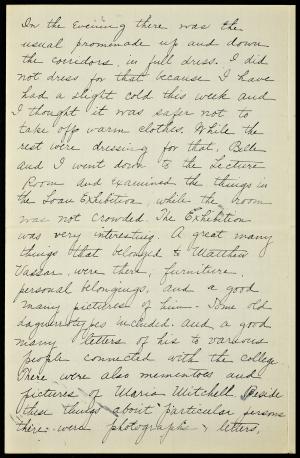 In the evening there was the
usual promenade up and down
the corridors, in full dress. I did
not dress for that because I have
had a slight cold this week and
I thought it was safer not to
take off warm clothes. While the
rest were dressing for that, Belle
and I went down to the Lecture
Room and examined the things in
the Loan Exhibition, while the room
was not crowded. The Exhibition
was very interesting. A great many
things that belonged to Matthew
Vassar, were there, furniture,
personal belongings, and a good
many pictures of him - some old
daguerrotypes included. and a good
many letters of his to various
people connected with the college.
There were also mementoes and
pictures of Maria Mitchell. Beside
these things about particular persons
there were photographs, letters,